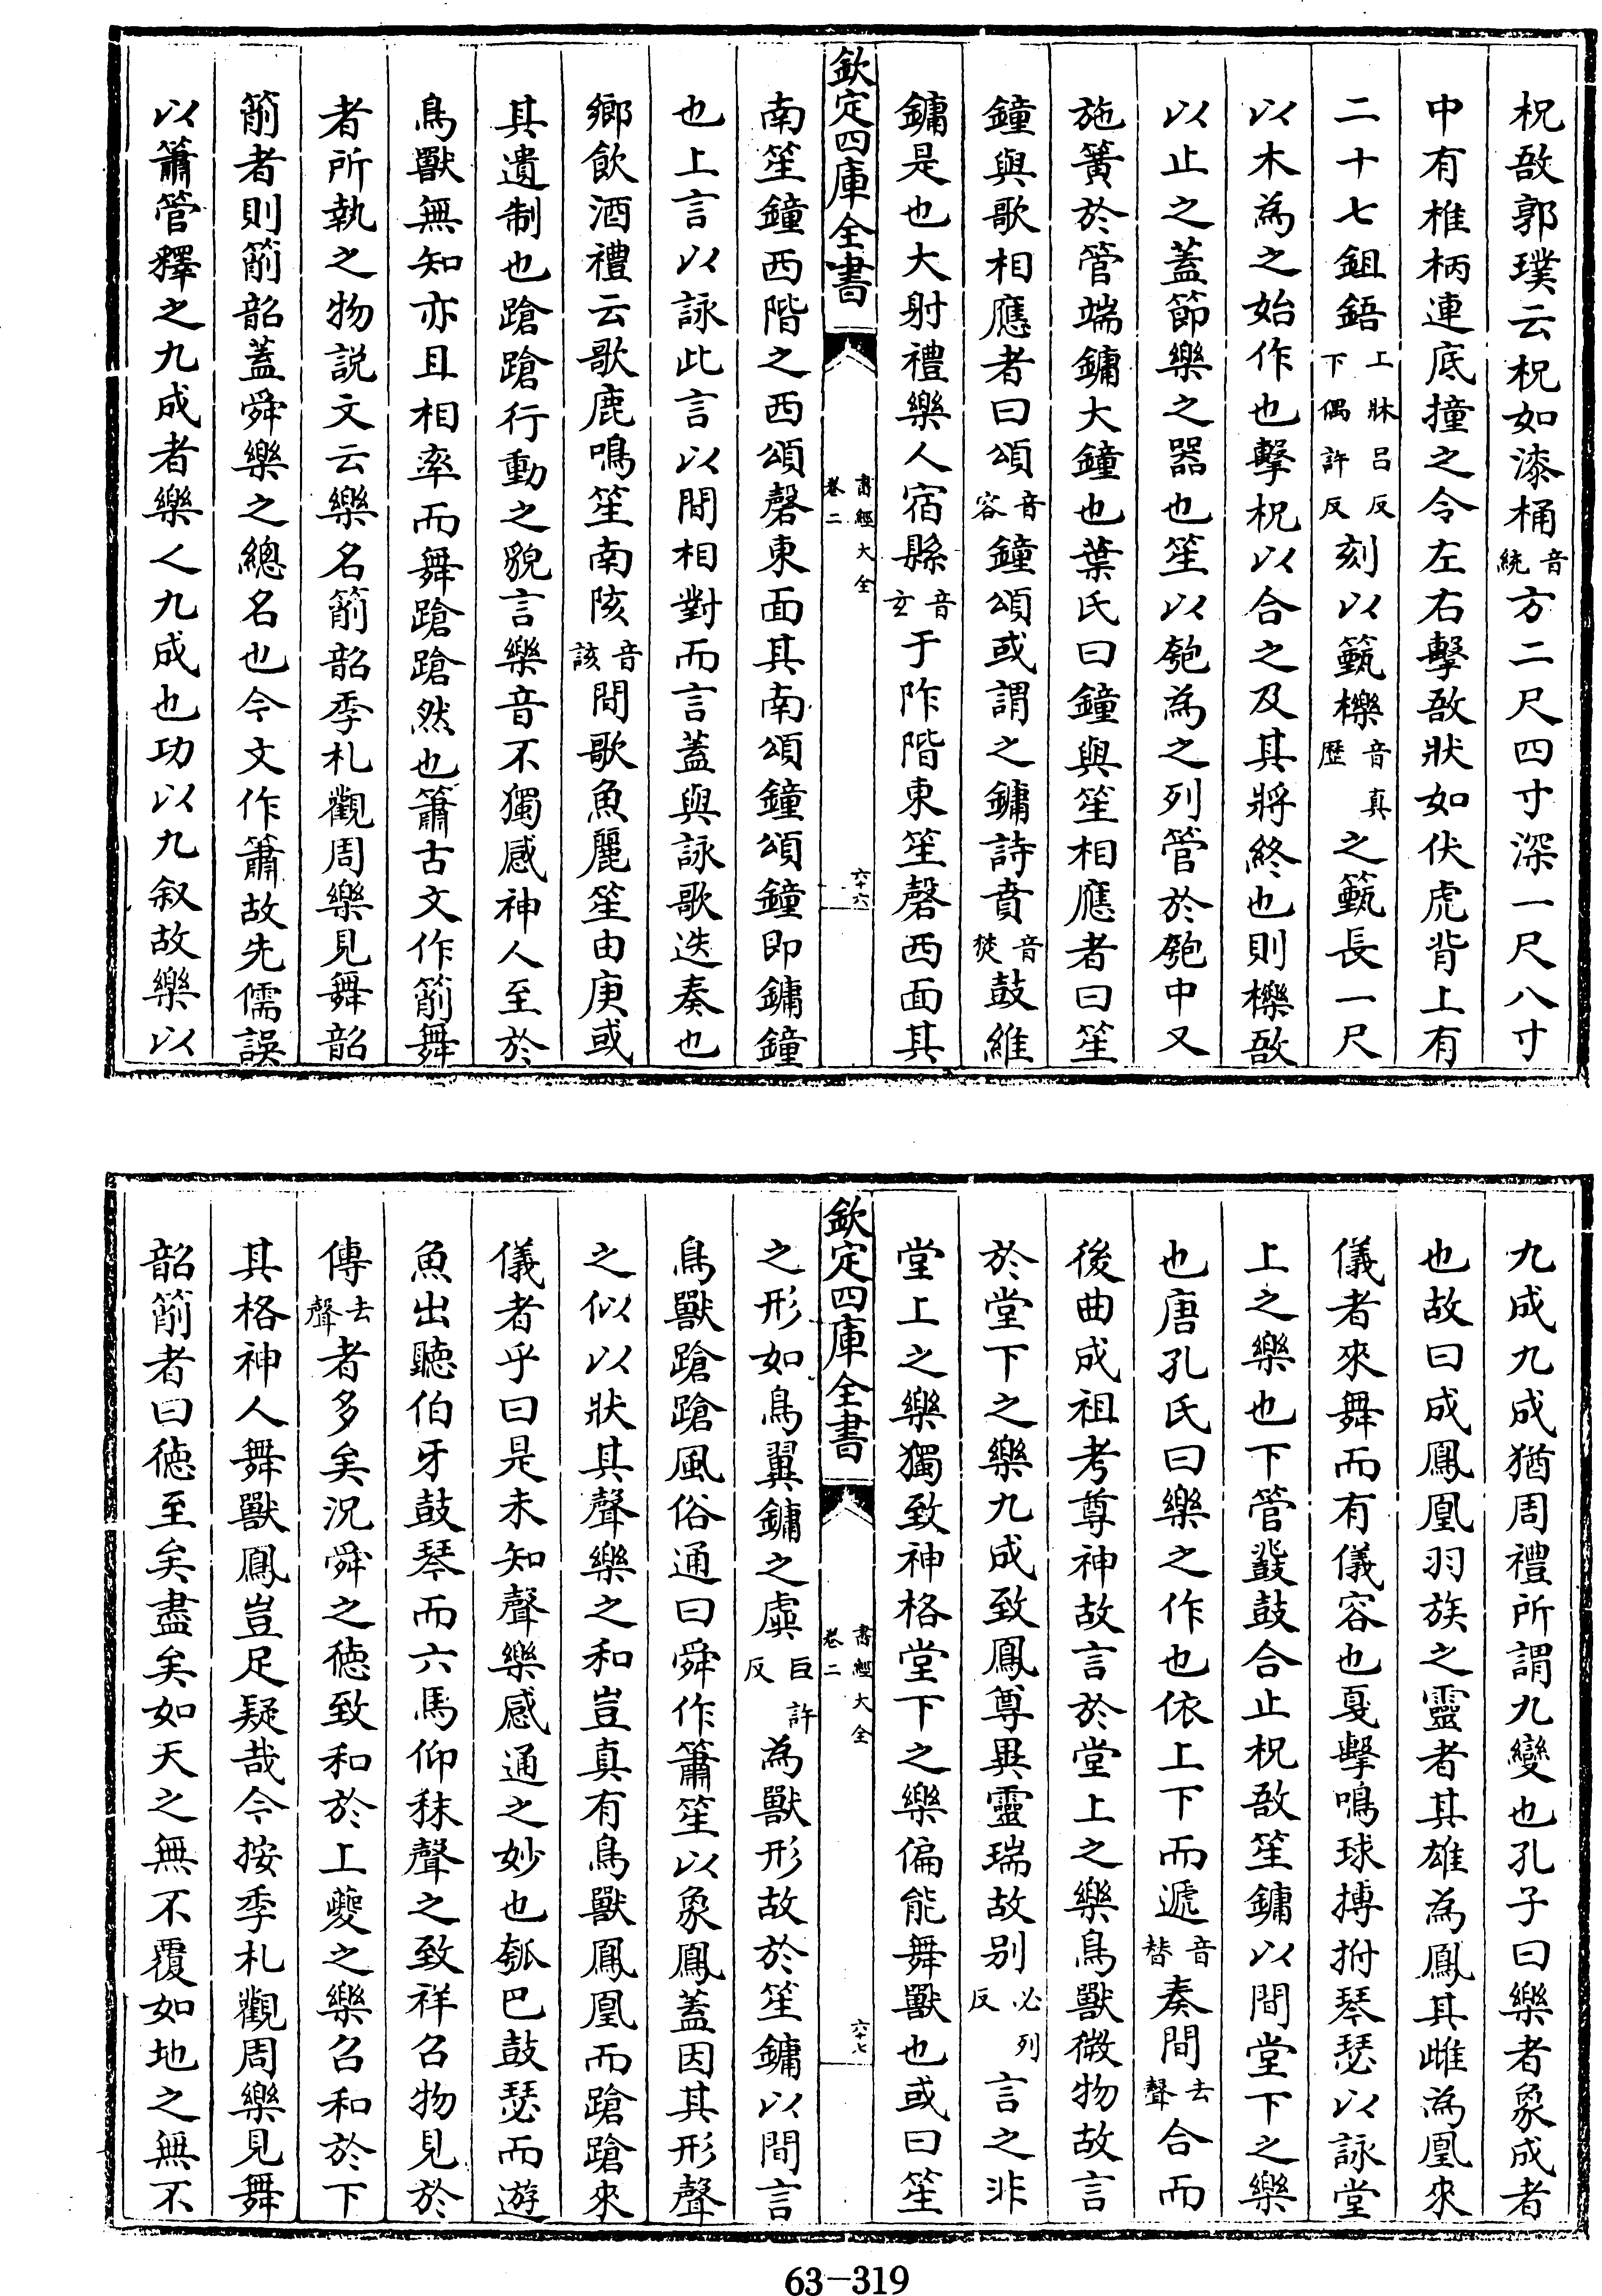 柷敔郭璞云柷如漆桶音統方二尺四寸深一尺八寸
中有椎柄連底撞之令左右擊敔狀如伏虎背上有
二十七鉏鋙上牀呂反下偶許反刻以籈櫟音歷真之籈長一尺
以木為之始作也擊柷以合之及其將終也則櫟敔
以止之蓋節樂之器也笙以匏為之列管於匏中又
施簧於管端鏞大鐘也葉氏曰鐘與笙相應者曰笙
鐘與歌相應者曰頌音容鐘頌或謂之鏞詩賁音焚鼓維
鏞是也大射禮樂人宿縣音玄于阼階東笙磬西面其
欽定四庫全書
書經大全
卷二
六十六
南笙鐘西階之西頌磬東面其南頌鐘頌鐘即鏞鐘
也上言以詠此言以間相對而言蓋與詠歌迭奏也
鄉飲酒禮云歌鹿鳴笙南陔音該間歌魚麗笙由庚或
其遺制也蹌蹌行動之貌言樂音不獨感神人至於
鳥獸無知亦且相率而舞蹌蹌然也簫古文作箾舞
者所執之物說文云樂名箾韶季札觀周樂見舞韶
箾者則箾韶蓋舜樂之總名也今文作簫故先儒誤
以簫管釋之九成者樂之九成也功以九叙故樂以
九成九成猶周禮所謂九變也孔子曰樂者象成者
也故曰成鳳凰羽族之靈者其雄為鳳其雌為凰來
儀者來舞而有儀容也戛擊鳴球搏拊琴瑟以詠堂
上之樂也下管鼗鼓合止柷敔笙鏞以間堂下之樂
也唐孔氏曰樂之作也依上下而遞音替奏間去聲合而
後曲成祖考尊神故言於堂上之樂鳥獸微物故言
於堂下之樂九成致鳳尊異靈瑞故别必列反言之非
堂上之樂獨致神格堂下之樂偏能舞獸也或曰笙
欽定四庫全書
書經大全
卷二
六十七
之形如鳥翼鏞之虡巨許反為獸形故於笙鏞以間言
鳥獸蹌蹌風俗通曰舜作簫笙以象鳳蓋因其形聲
之似以狀其聲樂之和豈真有鳥獸鳳凰而蹌蹌來
儀者乎曰是未知聲樂感通之妙也瓠巴鼓瑟而遊
魚出聽伯牙鼓琴而六馬仰秣聲之致祥召物見於
傳去聲者多矣況舜之德致和於上夔之樂召和於下
其格神人舞獸鳳豈足疑哉今按季札觀周樂見舞
韶箾者曰德至矣盡矣如天之無不覆如地之無不
63-319